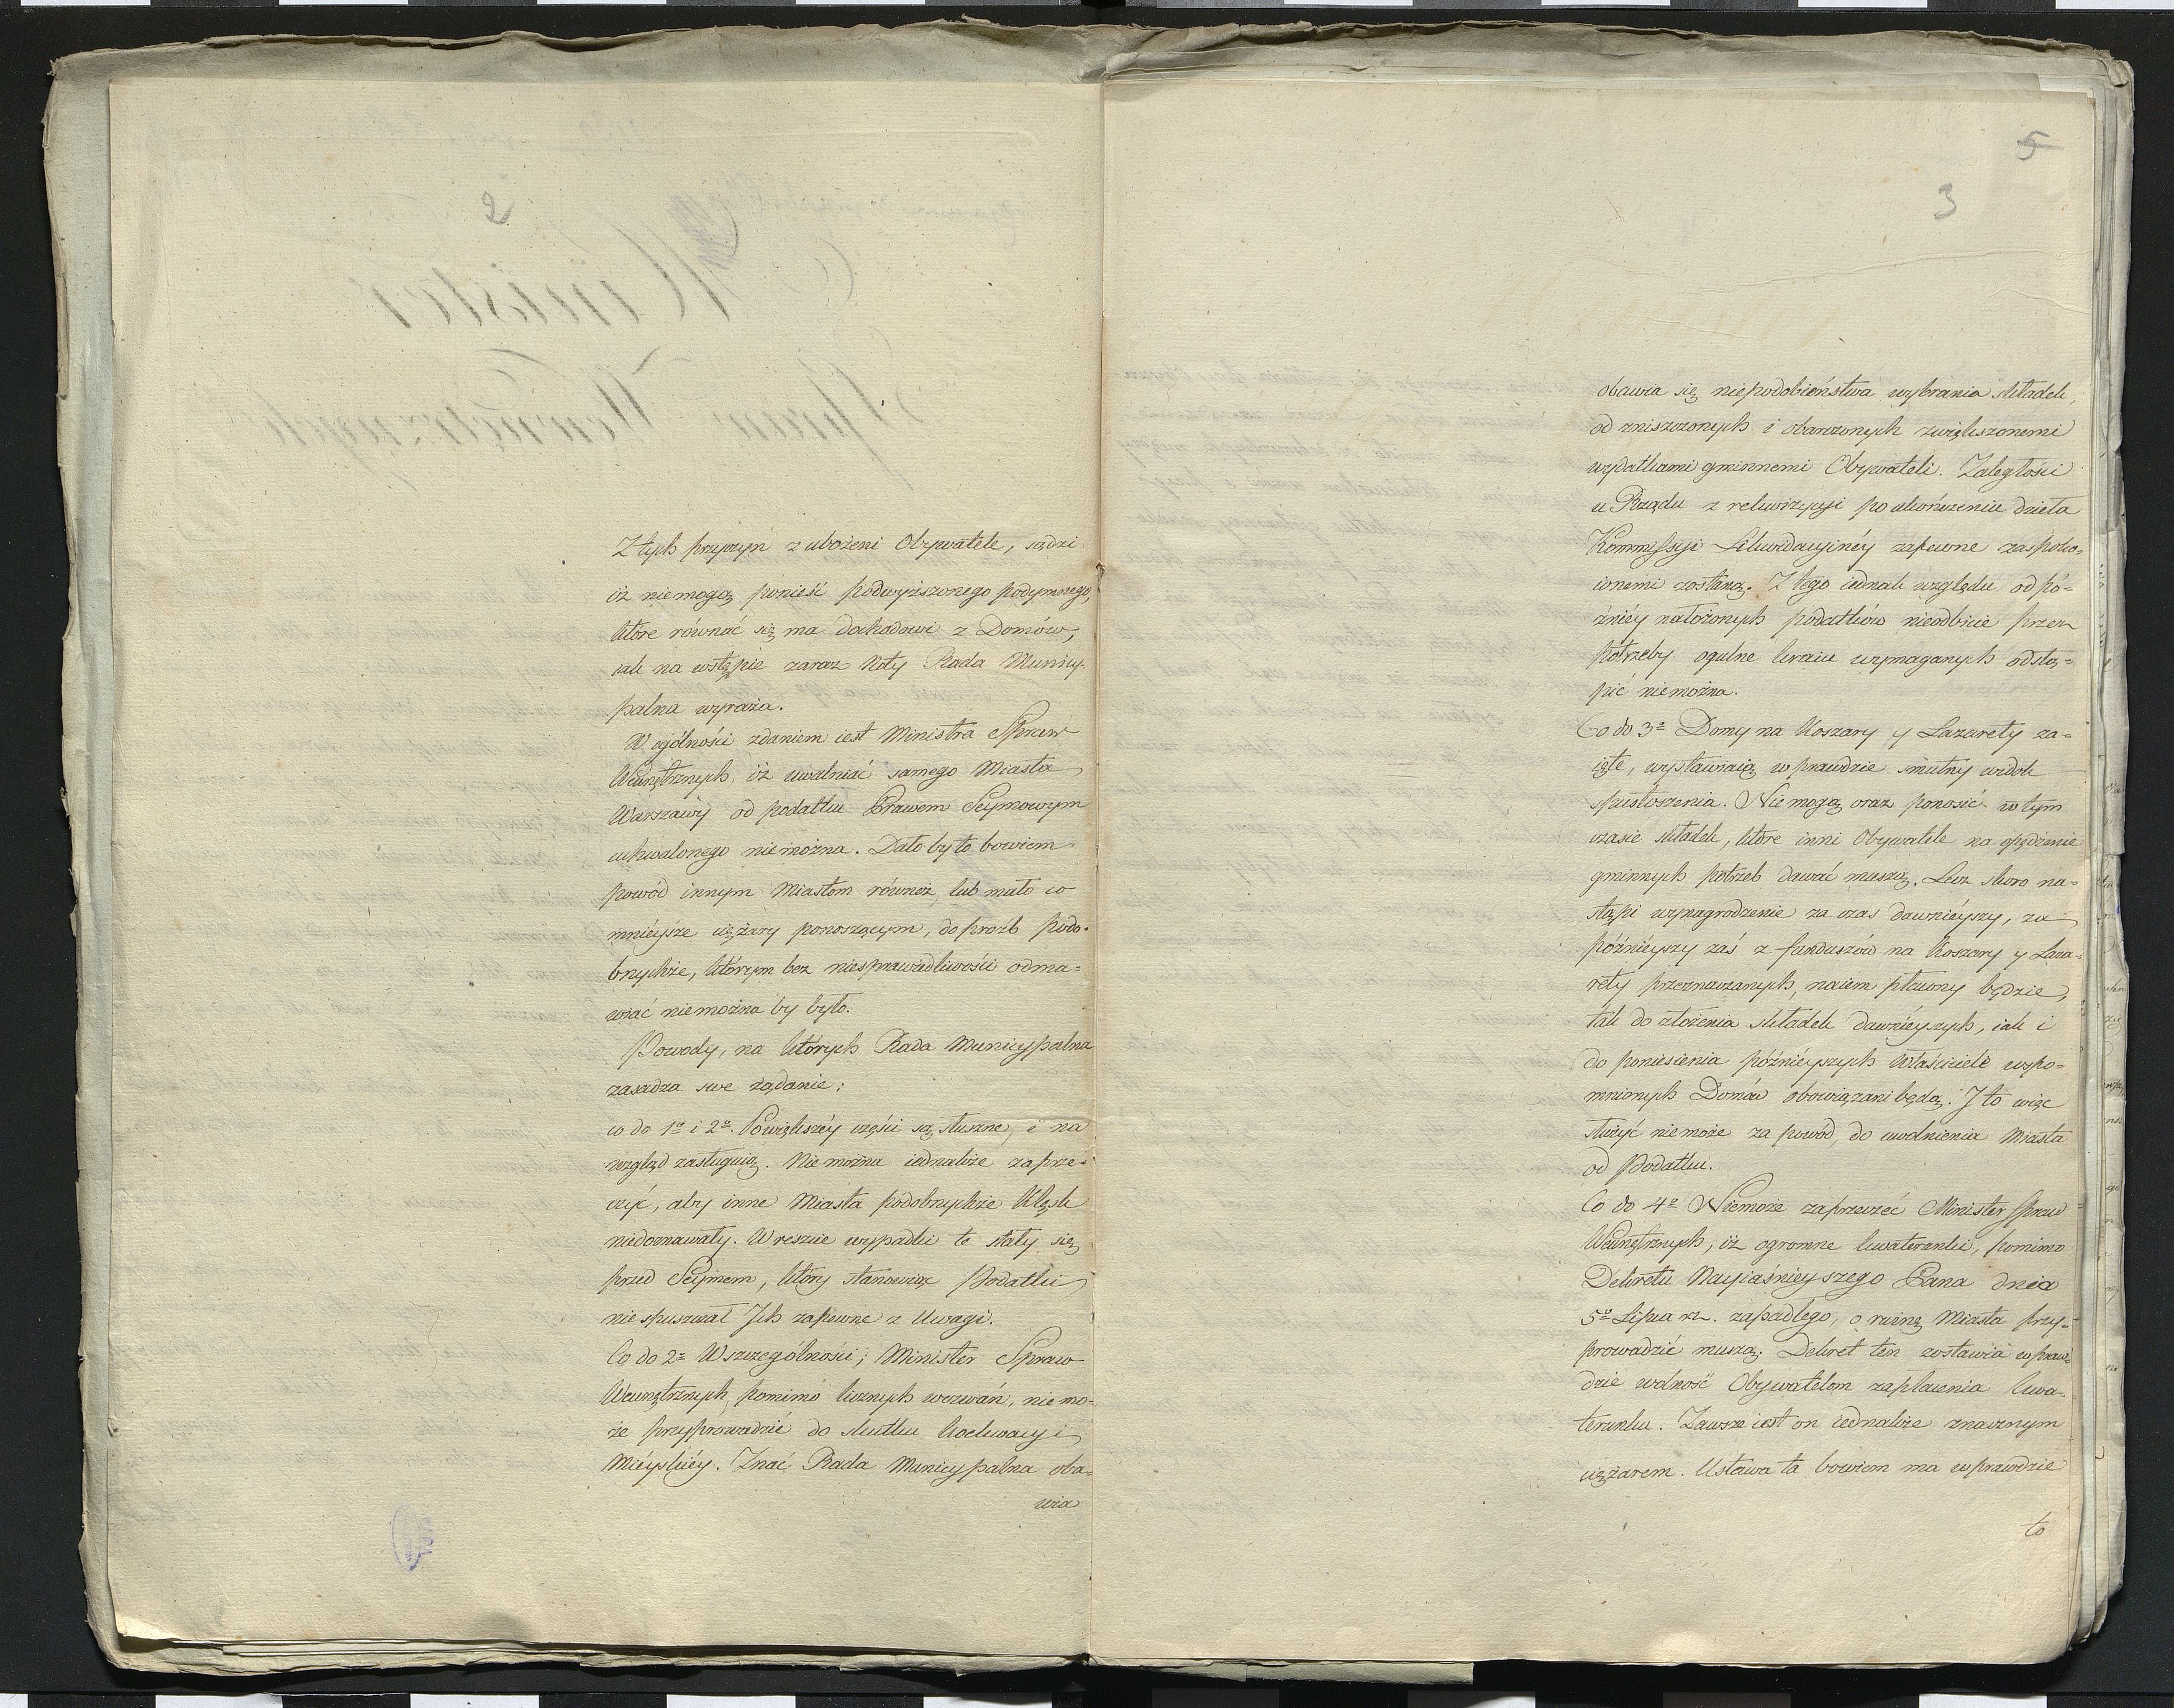 2
Z tych przyczyn zubożeni Obywatele, sądzi
iż niemogą ponieść podwyższonego podymnego,
które równać się ma dochodowi z Domów,
iak na wstępie zaraz Noty Rada Municy-
palna wyraża.
W ogólności zdaniem iest Ministra Spraw
Wewnętrznych, iż uwalniać samego Miasta
Warszawy od podatku Prawem Seymowym
uchwalonego niemożna. Dało by to bowiem
powód innym Miastom równeż, lub mało co
mnieysze ciężary ponoszącym, do prozb podo-
bnychże, którym bez niesprawiedliwości odma-
wiać niemożna by było.
Powody, na których Rada Municypalna
zasadza swe żądanie:
co do 1º i 2º. Powiększéy części są słuszne, i na
wzgląd zasługuią. Nie można iednakże zaprze-
czyć, aby inne Miasta podobnychże Klęsk
niedoznawały. W reszcie wypadki te stały się
przed Seymem, który stanowiąc Podatki
nie spuszczał Ich zapewne z Uwagi.
Co do 2º W szczególności; Minister Spraw
Wewnętrznych pomimo licznych wezwań, nie mo-
że przyprowadzić do skutku Koekwacyi
Mieyskiéy. Znać Rada Municypalna oba-
wia
5
3
obawia się niepodobieństwa wybrania składek,
od zniszczonych i obarczonych zwiększonemi
wydatkami gminnemi Obywateli. Zaległości
u Rządu z rekwizycyi po ukończeniu dzieła
Kommissyi Likwidacyinéy zapewne zaspoko-
ionemi zostaną. Z tego iednak względu od pó-
źniéy nałożonych podatków nieodbicie przez
potrzeby ogulne kraiu wymaganych odstą-
pić niemożna.
Co do 3º Domy na Koszary y Lazarety za-
ięte, wystawiaią w prawdzie smutny widok
spustoszenia. Nie mogą oraz ponosić w tym
czasie składek, które inni Obywatele na opędzenie
gminnych potrzeb dawać muszą. Lecz skoro na-
stąpi wynagrodzenie za czas dawnieyszy, za
późnieyszy zaś z funduszów na Koszary y Laza-
rety przeznaczanych, naiem płacony będzie,
tak do złożenia składek dawnieyszych, iak i
do poniesienia późnieyszych Właściciele wspo-
mnionych Domów obowiązani będą. I to więc
służyć niemoże za powód, do uwolnienia Miasta
od Podatku.
Co do 4º Niemoże zaprzeczeć Minister Spraw
Wewnętrznych, iż ogromne kwaterunki, pomimo
Dekretu Nayiaśnieyszego Pana dnia
5º Lipca rz. zapadłego, o ruinę Miasta przy-
prowadzić muszą. Dekret ten zostawia w praw-
dzie wolność Obywatelom zapłacenia kwa-
terunku. Zawsze iest on iednakże znacznym
ciężarem. Ustawa ta bowiem ma w prawdzie
to